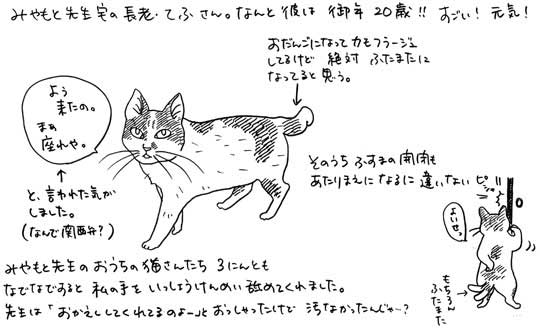 みやもと先生宅の長老・てふさん。なんと彼は御年20歳!! すごい!元気!
おだんごになってカモフラージュ
してるけど 絶対 ふたまたに
なってると思う。
よう
来たの。
まぁ
座れや。
と、言われた気が
しました。
(なんで関西弁?)
そのうち ふすまの開閉も
あたりまえになるに違いない
ピシャ
よいせっ
もちろん
ふたまた
みやもと先生のおうちの猫さんたち 3にんとも
なでなですると 私の手を いっしょうけんめい 舐めてくれました。
先生は「おかえししてくれてるのよー」とおっしゃったけど 汚なかったんじゃ…?